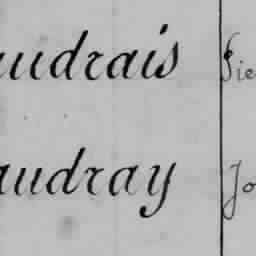 audrais Pie
audray Jo